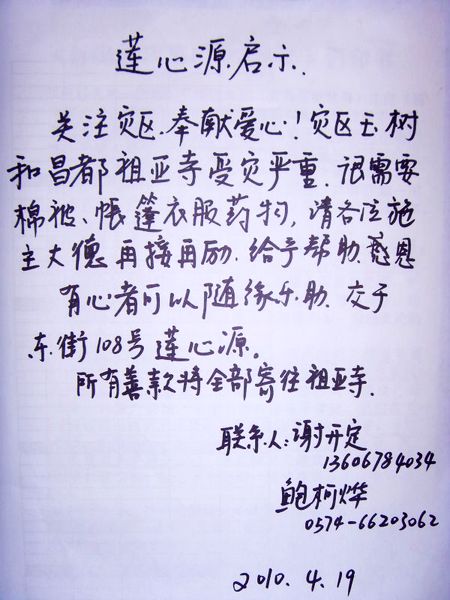 莲心源启示.
关注灾区,奉献爱心!灾区玉树
和昌都祖亚寺受灾严重.很需要
棉被、帐篷衣服药物,请各位施
主大德再接再励.给予帮助.感恩
有心者可以随缘乐助.交于
东街108号莲心源。
所有善款将全部寄往祖亚寺.
联系人:谢开定
13606784034
鲍柯烨
0574-66203062
2010.4.19